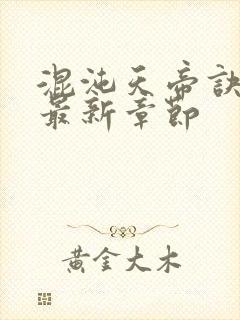 混沌天帝訣
最新章節
黃金大木